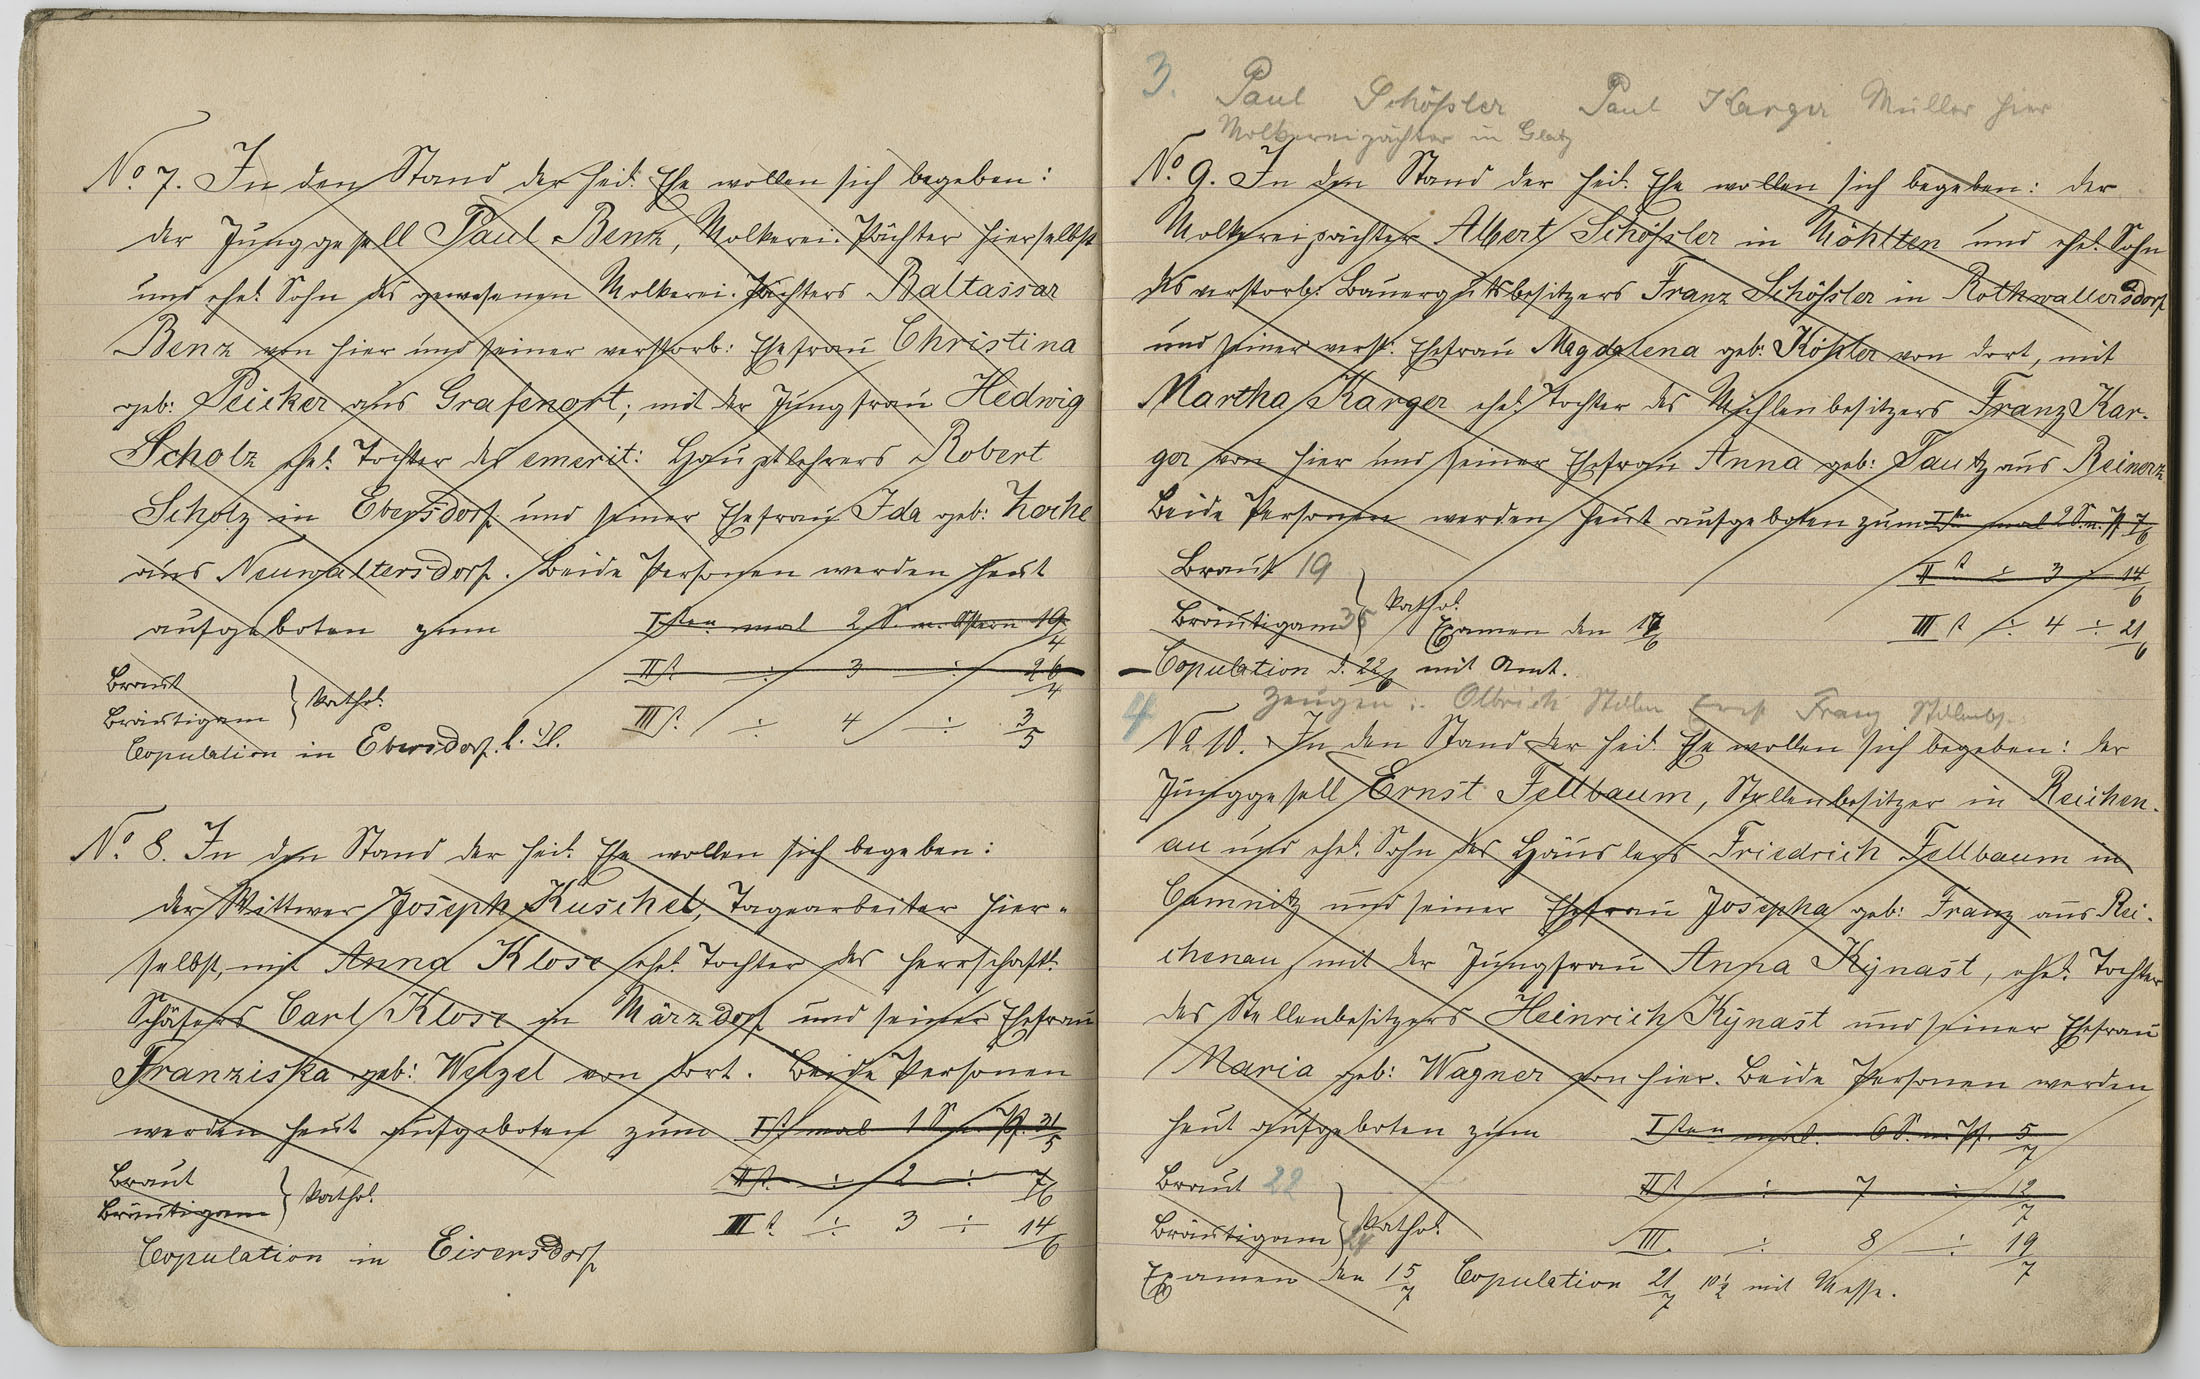 No. 7. In den Stand der heil. Ehe wollen sich begeben:
der Junggesell Paul Benz, Molkerei-Pächter hierselbst
und ehel. Sohn des gewesenen Molkerei-Pächters Baltassar
Benz von hier und seiner verstorb: Ehefrau Christina
geb: Peicker aus Grafenort; mit der Jungfrau Hedwig
Scholz ehel. Tochter des emerit: Hauptlehrers Robert
Scholz in Ebersdorf und seiner Ehefrau Ida geb: Zoche
aus Neuwaltersdorf. Beide Personen werden heut
aufgeboten zum Isten mal 2 S. n. Ostern 19/4
IIt. ÷ 3 ÷ 26/4
Braut
Bräutigam } kathol.
IIIt. ÷ 4 ÷ 3/5
Copulation in Ebersdorf.
No. 8. In den Stand der heil. Ehe wollen sich begeben:
der Wittwer Joseph Kuschel, Tagearbeiter hier-
selbst, mit Anna Klose ehel. Tochter des herrschaftl.
Schäfers Carl Klose in Märzdorf und seiner Ehefrau
Franziska geb: Welzel von dort. Beide Personen
werden heut aufgeboten zum It. mal 1 S. n. Pf. 31/5
Braut
IIt. ÷ 2 ÷ 7/6
Bräutigam } kathol.
IIIt. ÷ 3 ÷ 14/6
Copulation in Eisersdorf
3. Paul Schößler Paul Karger Müller hier
Molkereipächter in Glatz
No. 9. In den Stand der heil. Ehe wollen sich begeben: der
Molkereipächter Albert Schößler in Möhlten und ehel. Sohn
des verstorb. Bauergutsbesitzers Franz Schößler in Rothwaltersdorf
und seiner verst. Ehefrau Magdalena geb: Kößler von dort, mit
Martha Karger ehel. Tochter des Mühlenbesitzers Franz Kar-
ger von hier und seiner Ehefrau Anna geb: Tautz aus Reinerz
Beide Personen werden heut aufgeboten zum Iten mal 2 S. n. Pf. 7/6
Braut 19
IIt ÷ 3 ÷ 14/6
Bräutigam 35 } kathol.
Examen den
IIIt ÷ 4 ÷ 21/6
Copulation d. 22/6 mit Amt.
Zeugen: Olbrich Stellen Franz Stellenbs.
4
No. 10. In den Stand der heil. Ehe wollen sich begeben: der
Junggesell Ernst Fellbaum, Stellenbesitzer in Reichen-
au und ehel. Sohn des Häuslers Friedrich Fellbaum in
Camnitz und seiner Ehefrau Josepha geb: Franz aus Rei-
chenau, mit der Jungfrau Anna Kynast, ehel. Tochter
des Stellenbesitzers Heinrich Kynast und seiner Ehefrau
Maria geb: Wagner von hier. Beide Personen werden
heut aufgeboten zum Isten mal. 6 S. n. Pf. 5/7
Braut 22
IIt ÷ 7 ÷ 12/7
Bräutigam 24 } kathol.
III. ÷ 8 ÷ 19/7
Examen den 15/7 Copulation 21/7 10½ mit Messe.